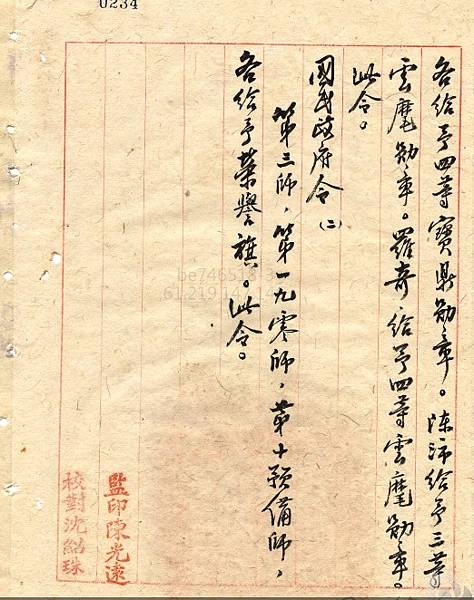 0234
各給予四等寶鼎勛章。陳沛給予三等
雲麾勛章。羅奇給予四等雲麾勛章。
此令。
國民政府令㈡
第三師，第一九零師，第十預備師，
各給予榮譽旗。此令。
監印陳光遠
校對沈紹珠